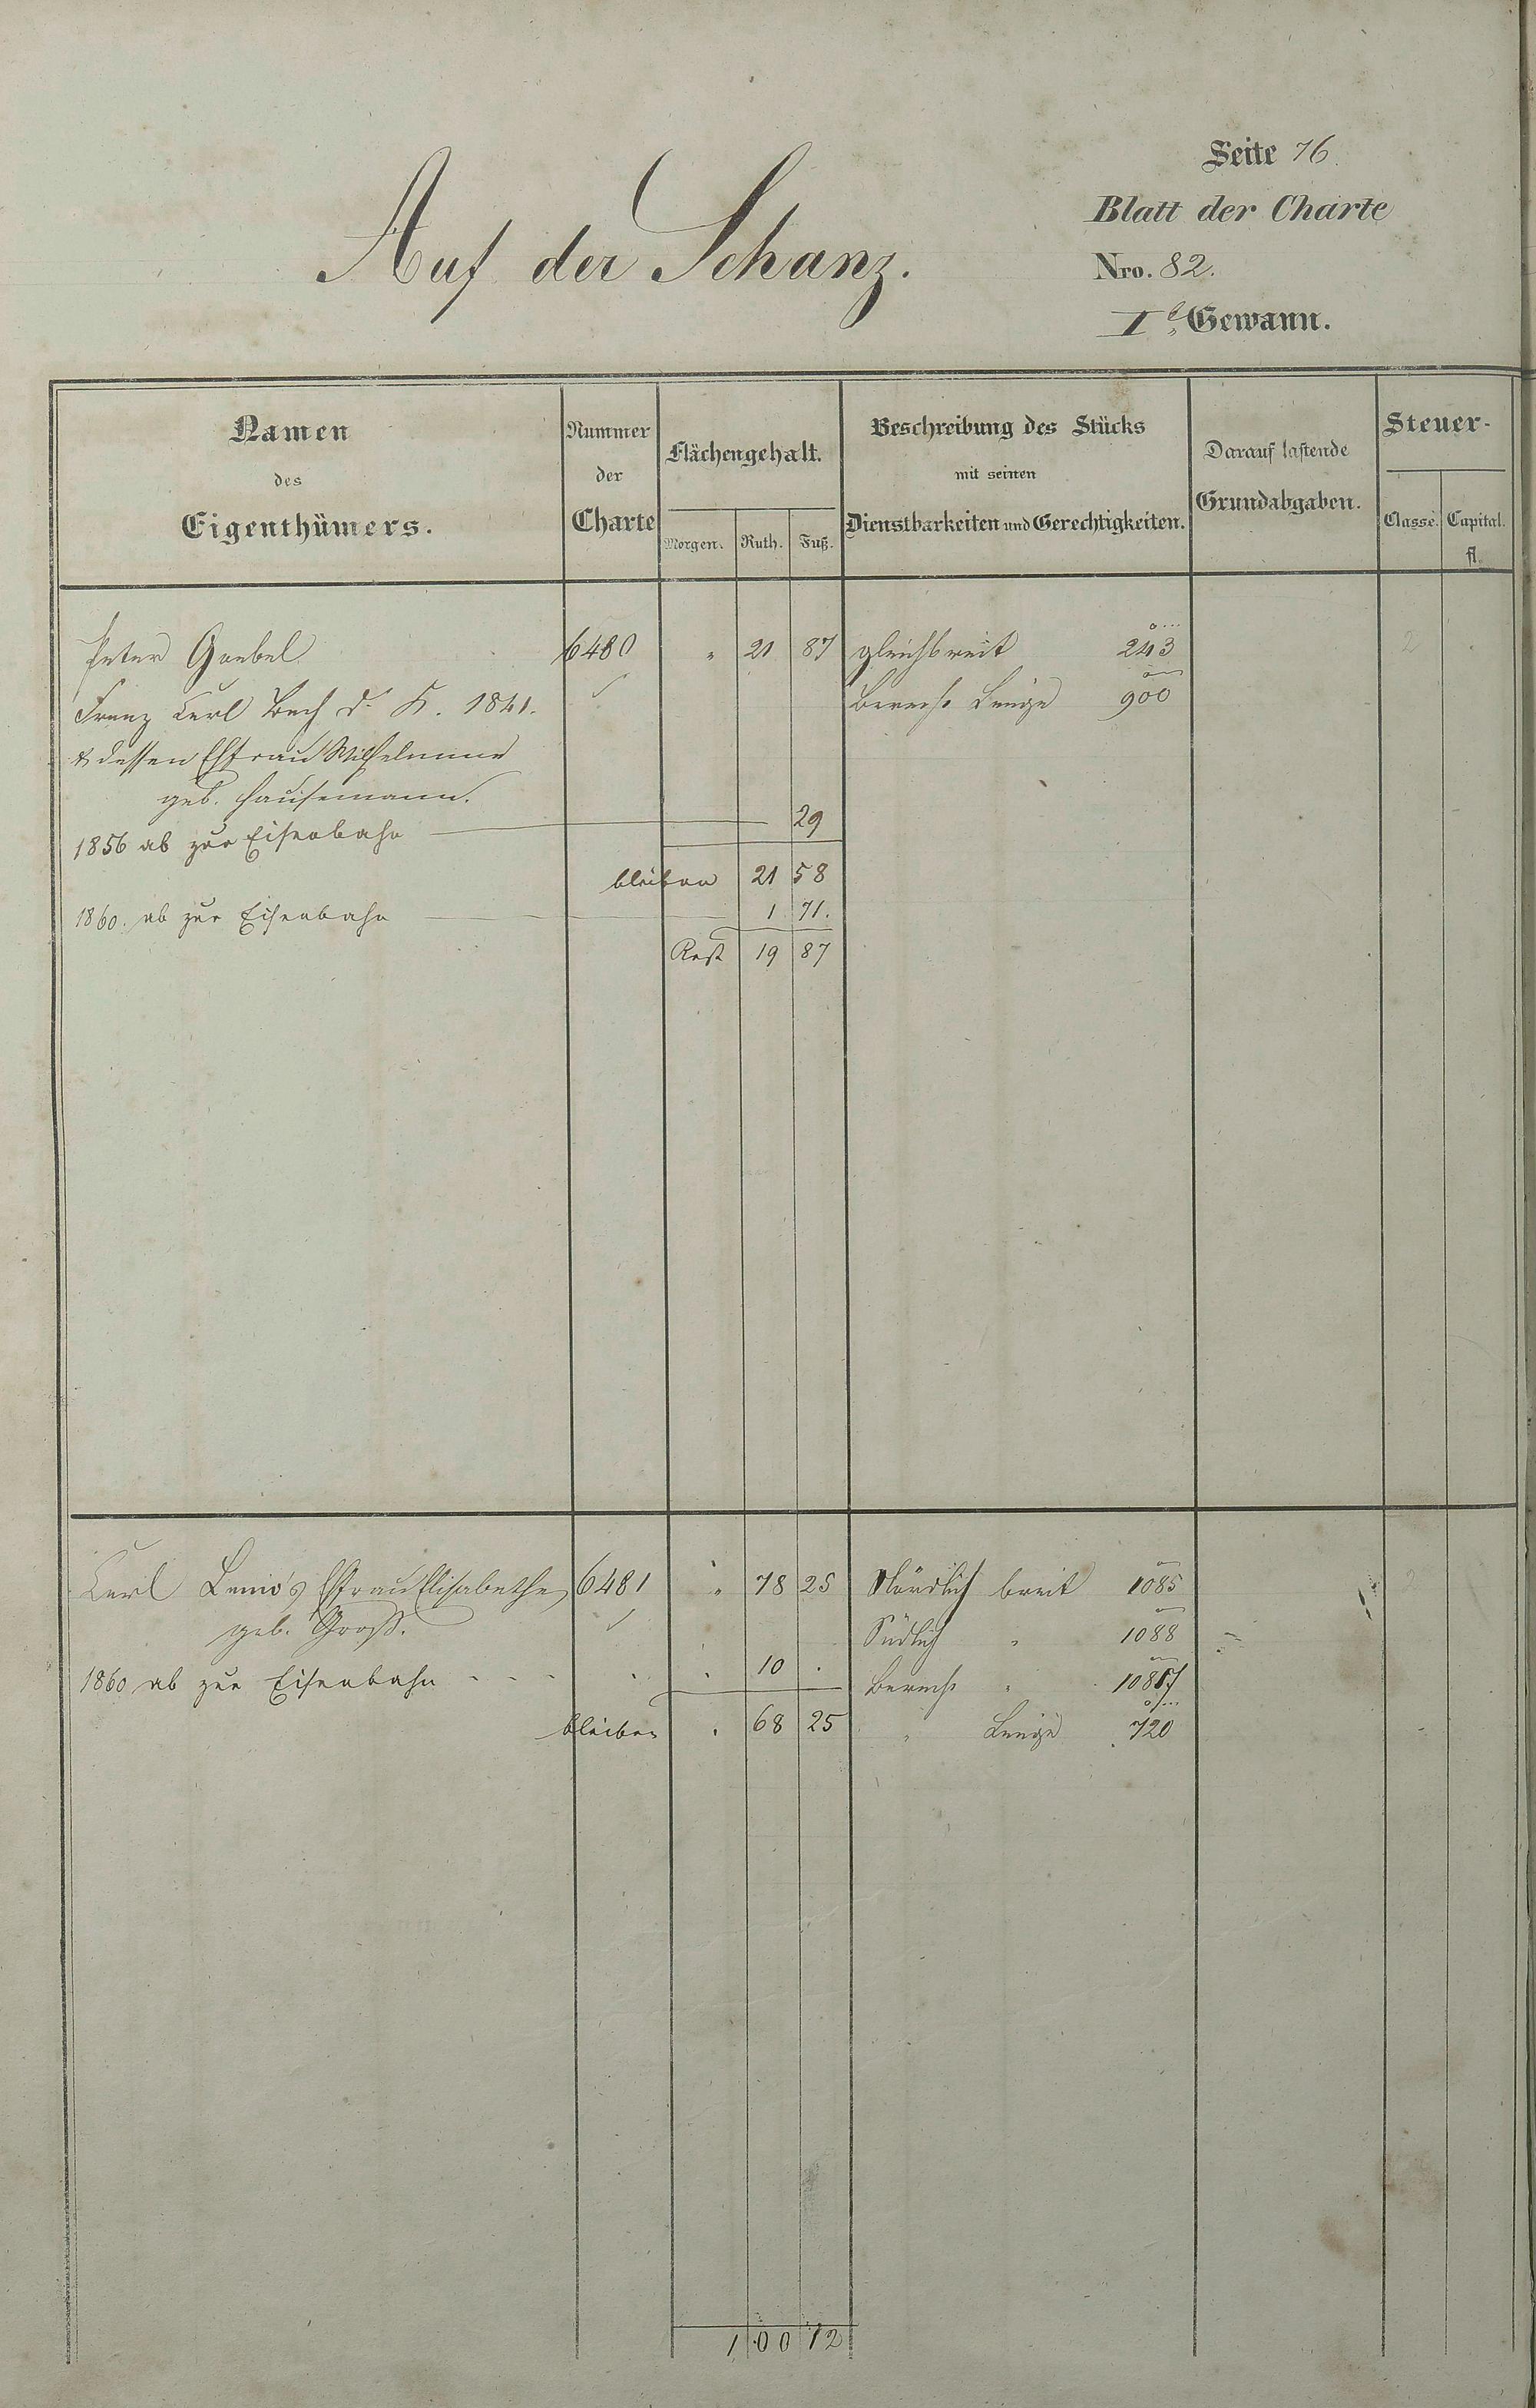 Seite 76.
Auf der Schanz.
Blatt der Charte
Nro. 82.
Ie Gewann.
Namen des Eigenthümers.
Nummer der Charte
Flächengehalt.
Morgen. Ruth. Fuß.
Beschreibung des Stücks mit seinen Dienstbarkeiten und Gerechtigkeiten.
Darauf lastende Grundabgaben.
Steuer-
Classe. Capital. fl.
Peter Goebel 6480 " 21 87 gleichbreit 243 2
Franz Carl Bach d. K. 1841. Berech. Länge 900
& dessen Ehfrau Wilhelmine
geb. Hausemann.
1856 ab zur Eisenbahn 29
bleiben 21 58
1860. ab zur Eisenbahn 1 71.
Rest 19 87
Carl Ehfrau Elisabethe 6481 " 78 25 Nördlich breit 1085 2
geb. Groß. Südlich " 1088
1860 ab zur Eisenbahn 10 . Berech. "
bleiben . 68 25 " Länge 720
1 00 12